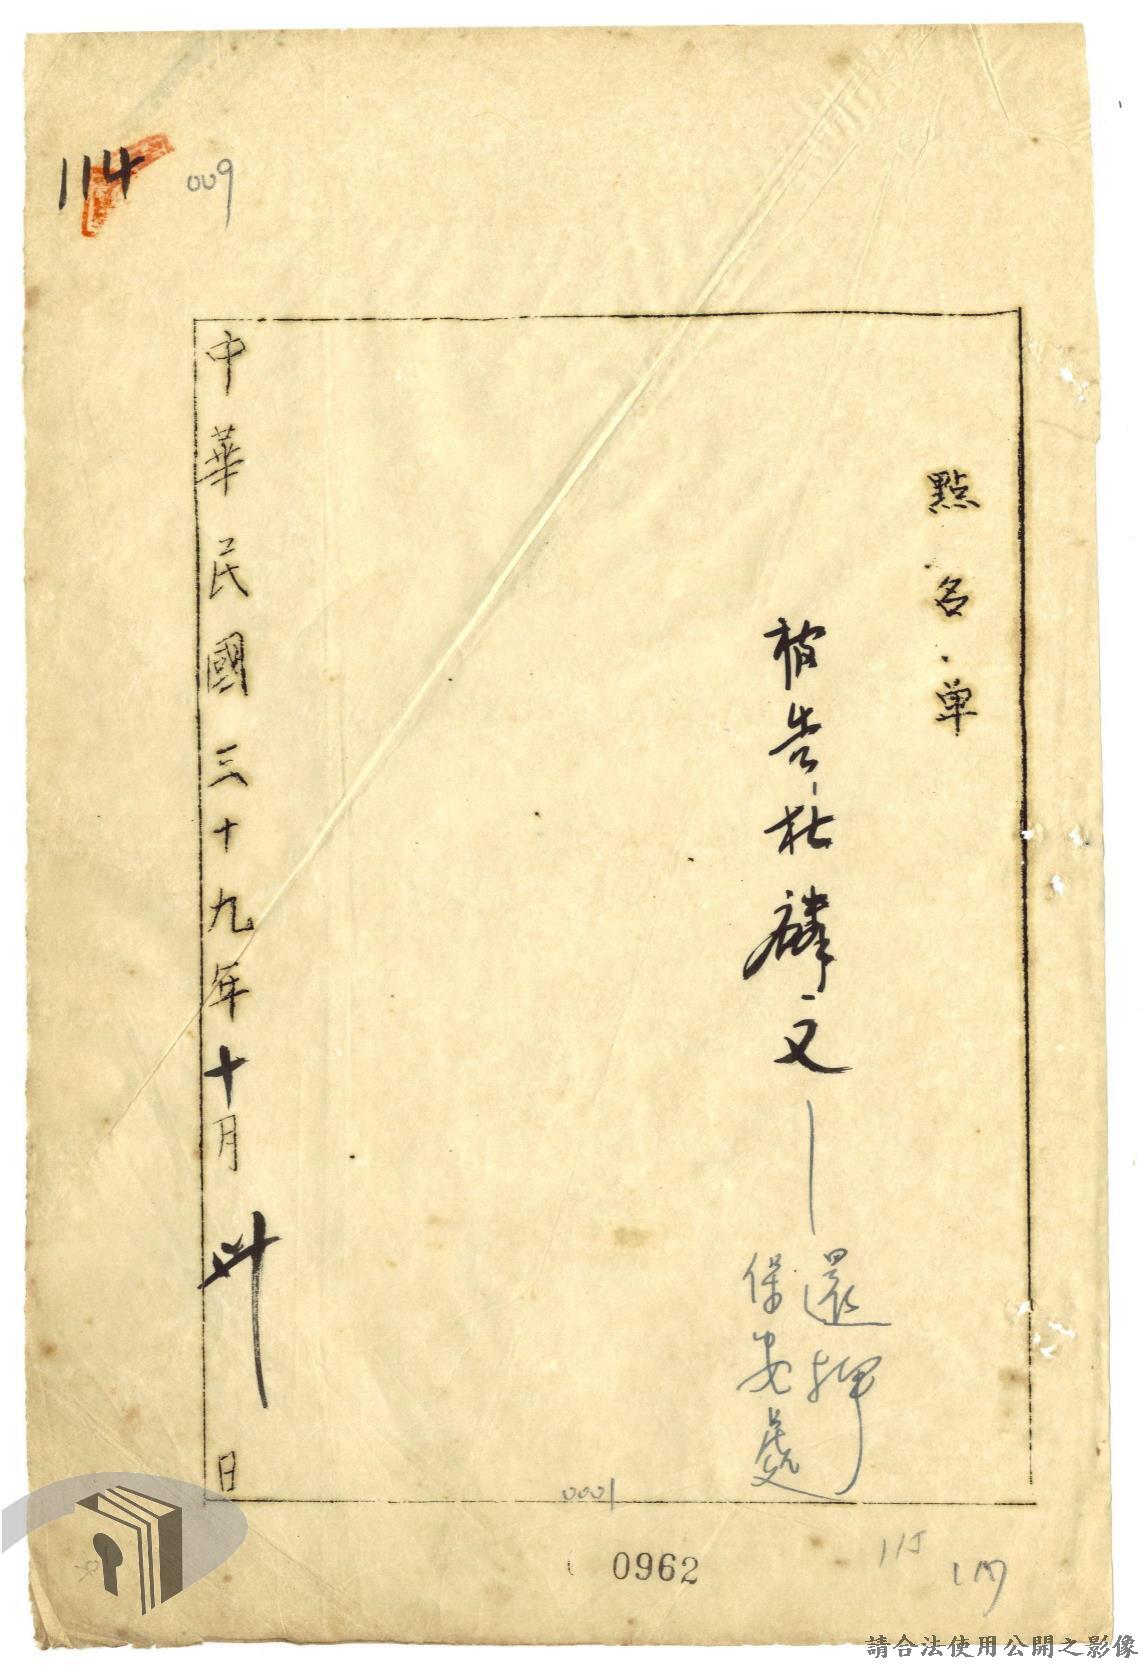 114
009
點名单
被告杜麟文
還押
保安處
中華民國三十九年十月卅日
0001
0962
115
請合法使用公開之影像